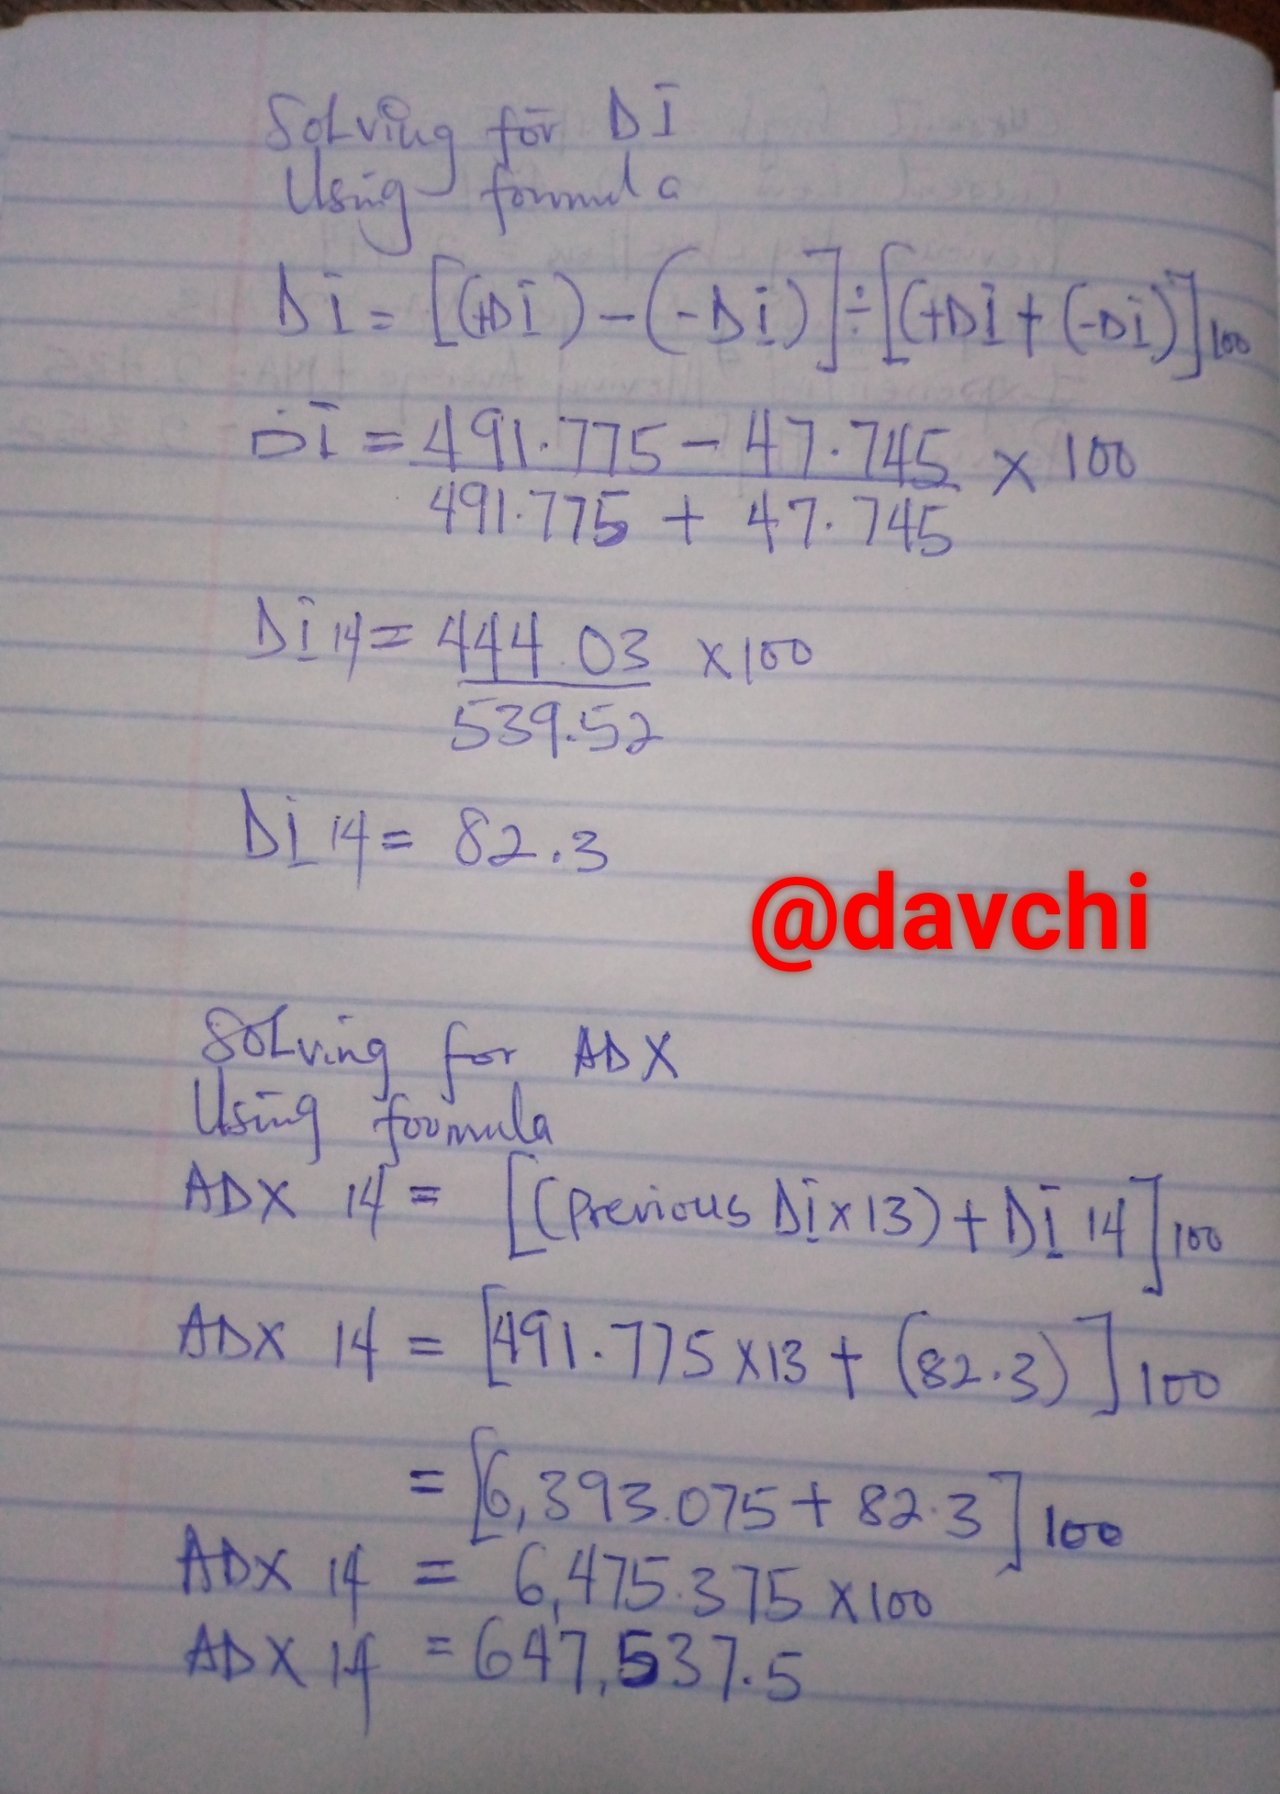 Solving for DI
Using formula
DI = [(+DI) - (-DI)] ÷ [(+DI + (-DI)]100
DI = 491.775 - 47.745 x 100
491.775 + 47.745
DI 14 = 444.03 x100
539.52
DI 14 = 82.3
@davchi
Solving for ADX
Using formula
ADX 14 = [(Previous DI x 13) + DI 14]100
ADX 14 = [491.775 x13 + (82.3)]100
= [6,393.075 + 82.3]100
ADX 14 = 6,475.375 x100
ADX 14 = 647,537.5